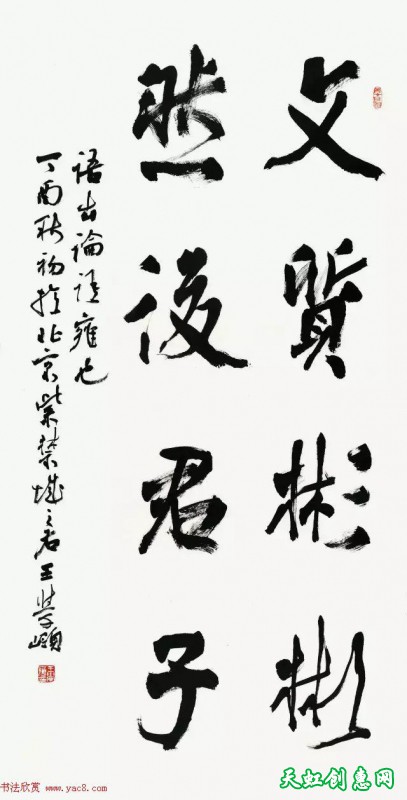 文質彬彬
然後君子
語出論語雍也
丁酉秋初於北京紫禁城之右王學嶺
书法欣赏 www.yac8.com
天虹创意网